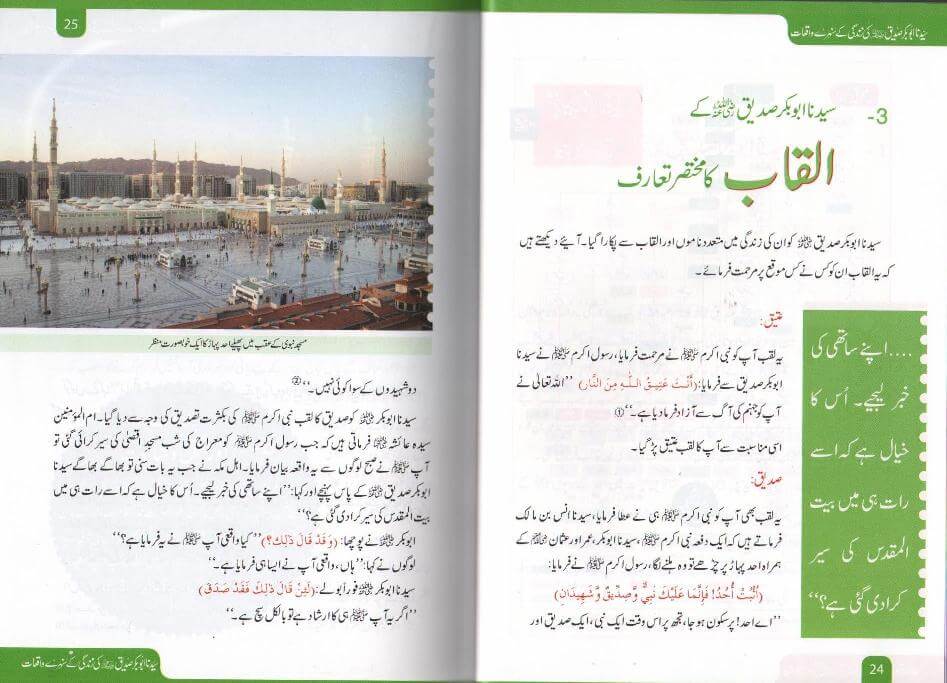 سیدنا ابوبکر صدیق ﷜ کی زندگی کے سنہرے واقعات
3- سیدنا ابوبکر صدیق ﷜ کے
القاب کا مختصر تعارف
سیدنا ابوبکر صدیق ﷜ کو ان کی زندگی میں متعدد ناموں اور القاب سے پکارا گیا۔ آیئے دیکھتے ہیں
کہ یہ القاب ان کو کس نے کس موقع پر مرحمت فرمائے۔
عتیق:
یہ لقب آپ کو نبی اکرم ﷺ نے مرحمت فرمایا، رسول اکرم ﷺ نے سیدنا
ابوبکر صدیق سے فرمایا: (أَنْتَ عَتِيقُ اللّٰهِ مِنَ النَّارِ) ’’اللہ تعالیٰ نے
آپ کو جہنم کی آگ سے آزاد فرما دیا ہے۔‘‘①
اسی مناسبت سے آپ کا لقب عتیق پڑ گیا۔
صدیق:
یہ لقب بھی آپ کو نبی اکرم ﷺ ہی نے عطا فرمایا، سیدنا انس بن مالک
فرماتے ہیں کہ ایک دفعہ نبی اکرم ﷺ، سیدنا ابوبکر، عمر اور عثمان ﷢ کے
ہمراہ احد پہاڑ پر چڑھے تو وہ ہلنے لگا، رسول اکرم ﷺ نے فرمایا:
(اُثْبُتْ أُحُدُ! فَإِنَّمَا عَلَيْكَ نَبِيٌّ وَّصِدِّيقٌ وَّشَهِيدَانِ)
’’اے احد! پرسکون ہو جا، تجھ پر اس وقت ایک نبی، ایک صدیق اور
....اپنے ساتھی کی
خبر لیجیے۔ اُس کا
خیال ہے کہ اسے
رات ہی میں بیت
المقدس کی سیر
کرا دی گئی ہے؟‘‘
24
25
مسجد نبوی کے عقب میں پھیلے احد پہاڑ کا ایک خوبصورت منظر
دو شہیدوں کے سوا کوئی نہیں۔‘‘②
سیدنا ابوبکر ﷜ کو صدیق کا لقب نبی اکرم ﷺ کی بکثرت تصدیق کی وجہ سے دیا گیا۔ ام المؤمنین
سیدہ عائشہ ﷞ فرماتی ہیں کہ جب رسول اکرم ﷺ کو معراج کی شب مسجد اقصیٰ کی سیر کرائی گئی تو
آپ ﷺ نے صبح لوگوں سے یہ واقعہ بیان فرمایا۔ اہل مکہ نے جب یہ بات سنی تو بھاگے بھاگے سیدنا
ابوبکر صدیق ﷜ کے پاس پہنچے اور کہا: ’’اپنے ساتھی کی خبر لیجیے۔ اُس کا خیال ہے کہ اسے رات ہی میں
بیت المقدس کی سیر کرا دی گئی ہے؟‘‘
ابوبکر ﷜ نے پوچھا: (وَقَدْ قَالَ ذٰلِكَ؟) ’’کیا واقعی آپ ﷺ نے یہ فرمایا ہے؟‘‘
لوگوں نے کہا: ’’ہاں، واقعی آپ نے ایسا ہی فرمایا ہے۔‘‘
سیدنا ابوبکر ﷜ فوراً بولے: (لَئِنْ قَالَ ذٰلِكَ فَقَدْ صَدَقَ)
’’اگر یہ آپ ﷺ ہی کا ارشاد ہے تو بالکل سچ ہے۔‘‘
سیدنا ابوبکر صدیق ﷜ کی زندگی کے سنہرے واقعات